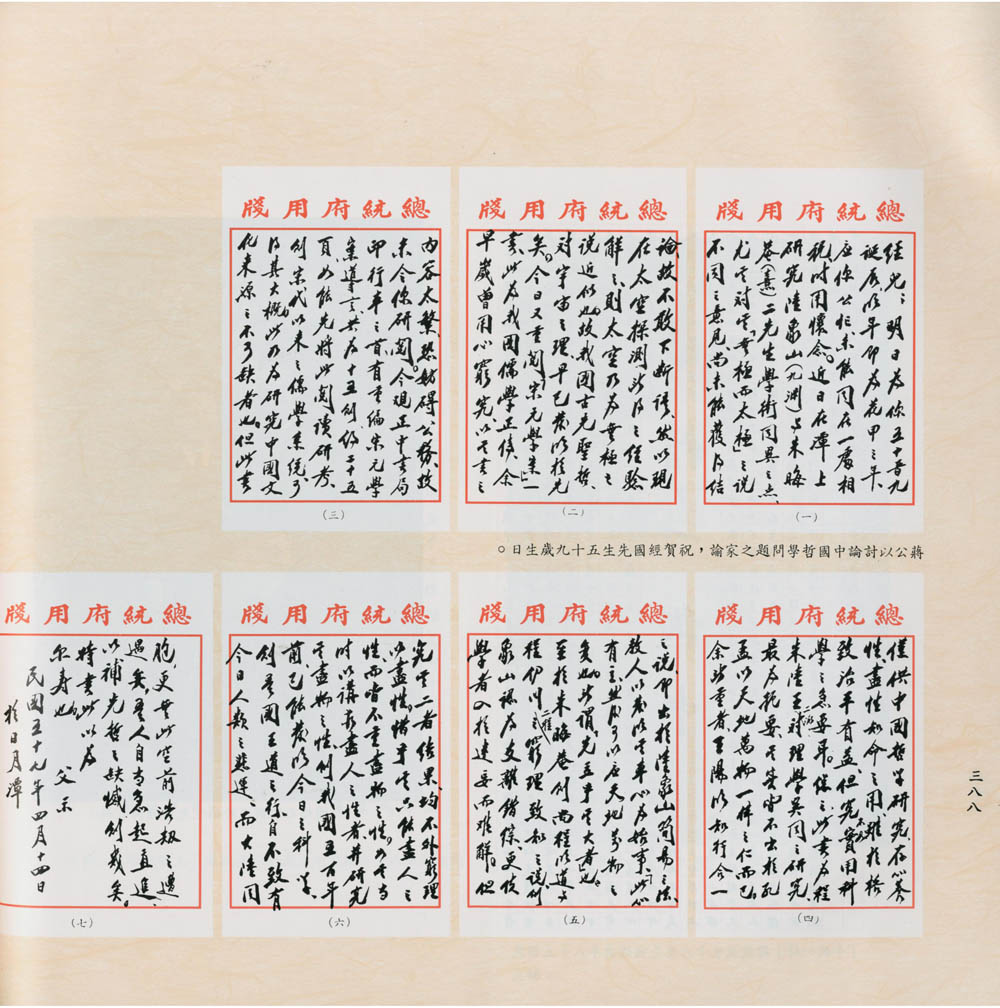 總統府用牋
經兒：明日為你五十有九
誕辰，明年即為花甲之年，
應你公忙，未能同在一處相
祝，時用懷念。近日在潭上
研究陸象山（九淵）與朱晦
菴（熹）二先生學術同異之點，
尤其對其「無極而太極」之說
不同之意見，尚未能獲得結
（一）
總統府用牋
論，故不敢下斷語，然以現
在太空探測所得之經驗
解之，則太空乃為無極之
說近似也，故我國古先聖哲，
對宇宙之理，早已發明於先
矣。今日又重閱「宋元學案」一
書，此為我國儒學正傳，余
早歲曾用心窮究，以其書之
（二）
總統府用牋
內容太繁，恐妨碍公務，故
未令你研閱。今觀正中書局
印行平之首有重編宋元學
案導言，共為十五創約二十五
頁，如能先將此閱讀研考，
則宋代以來之儒學系統，可
得其大概，此乃為研究中國文
化來源之不可缺者也。但此書
（三）
蔣公以討論中國哲學問題之家論，祝賀經國先生五十九歲生日。
總統府用牋
僅供中國哲學研究，存心養
性，盡性知命之用，雖於格
致治平有益，但究實用科
學之急要耳。保之，此書為程
朱陸王對理學異同之研究，
最為扼要，其實皆不出於孔
孟以天地萬物一体之仁而已。
余所重者，王陽明知行合一
（四）
總統府用牋
之說，即出於陸象山簡易之法，
教人以發明其本心為始事，此心
有主，然後可以應天地萬物之
變也，此所謂先立乎其大者也。
至於朱晦菴則兩程明道與
程伊川之窮理致知之說，則
象山認為支離錯綜，更使
學者入於迷妄而難解。但
（五）
總統府用牋
究其二者結果，均不外窮理
以盡性。惜乎其只能盡人之
性，而皆不重盡物之性。如其當
時以講求盡人之性者，並研究
其盡物之性，則我國五百年
前，已能發明今日之科學，
則吾國王道之行，自不致有
今日人類之悲運，而大陸同
（六）
總統府用牋
胞，更無此空前浩劫之遭
遇矣。吾人自當急起直追，
以補先哲之缺憾則幾矣。
特書此以為
尔壽也。
父示
民國五十九年四月十四日
於日月潭
（七）
三八八